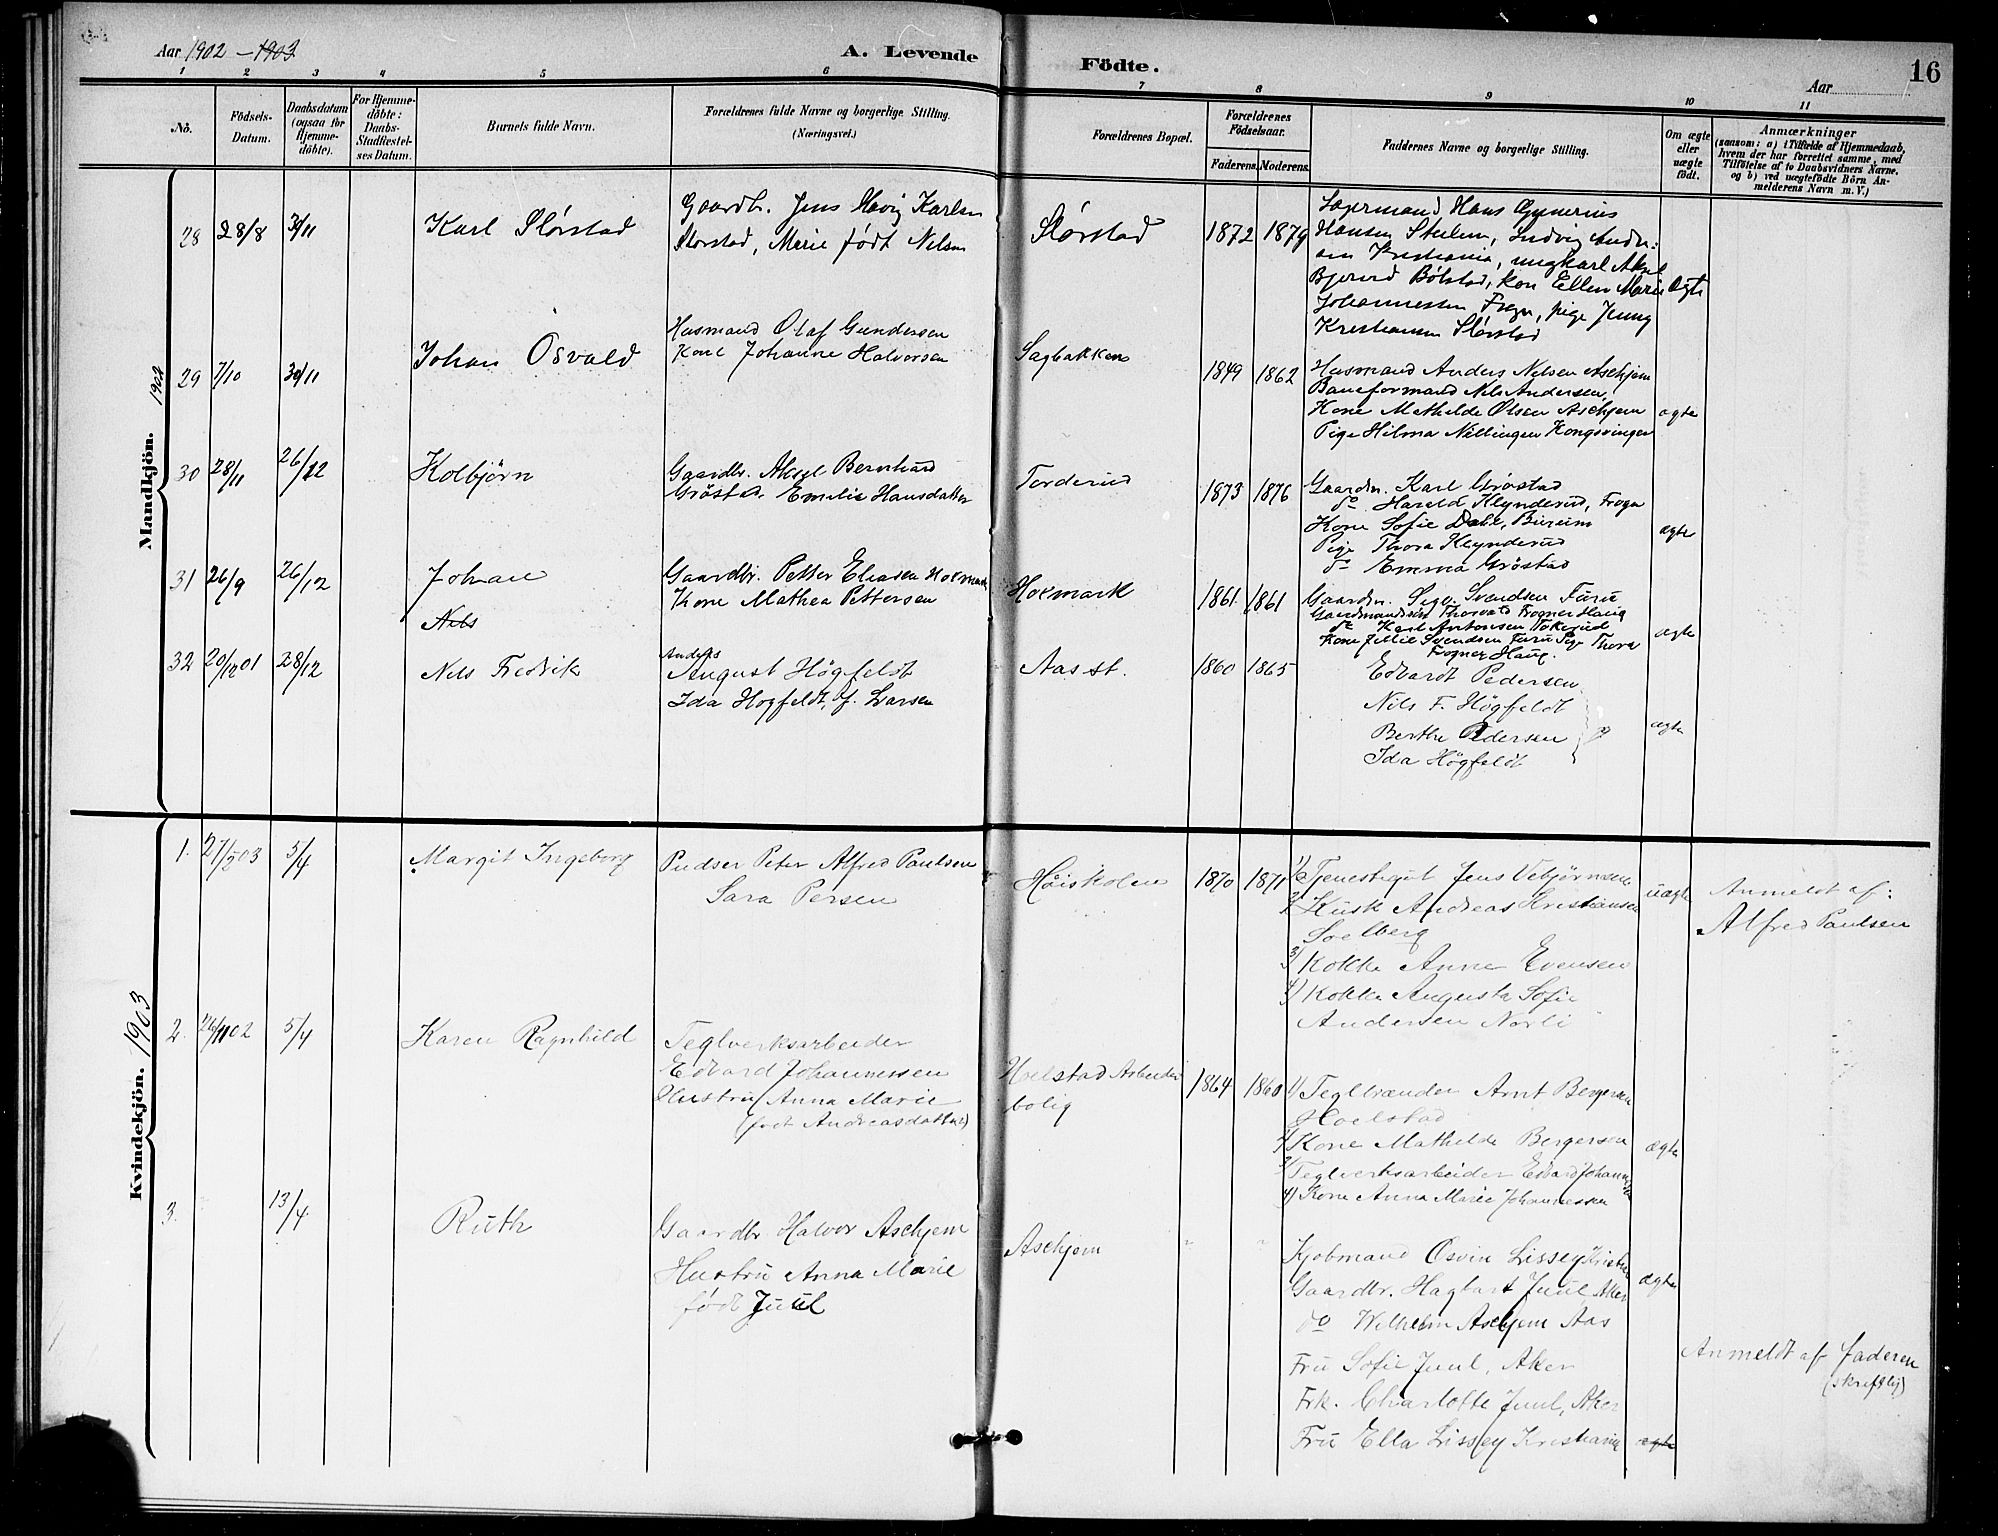 Aar 1902 – 1903
A. Levende Födte.
Aar
16
1 2 3 4 5 6 7 8 9 10 11
No.
Födsels-
Datum.
Daabsdatum
(ogsaa for
Hjemme-
döbte).
For Hjemme-
döbte:
Daabs-
Stadfæstel-
ses Datum.
Barnets fulde Navn.
Forældrenes fulde Navne og borgerlige Stilling.
(Næringsvei.)
Forældrenes Bopæl.
Forældrenes
Födselsaar.
Faderens. Moderens.
Faddernes Navne og borgerlige Stilling.
Om ægte
eller
uægte
födt.
Anmærkninger
(saasom: a) i Tilfælde af Hjemmedaab,
hvem der har forrettet samme, med
Tilföielse af to Daabsvidners Navne.
og b) ved uægtefödte Börn An-
melderens Navn m. V.)
Mandkjön. 1902
28 28/8 30/11 Karl Slørstad
Gaardbr. Jens Hævig Karlsen
Slørstad, Marie født Nilsen
Slørstad 1872 1879
Hans
Hansen Ludvig
Kristiania, ungkarl Aksel
Bjererd Bølstad, Kone Ellen Marie
Johannessen Frogn, pige Jenny
Kristiansen Slørstad
ægte
29 7/10 30/11 Johan Osvald
Husmand Olaf Gundersen
Kone Johanne Halvorsen
Sagbakken 1849 1862
Husmand Anders Nilsen Aschjem
Baneformand Nils Andersen,
Kone Mathilde Olsen Aschjem
Pige Hilma Nillingen Kongsvinger
ægte
30 28/11 26/12 Kolbjörn
Gaardbr. Aksel Bernhard
Gröstad. Emilie Hansdatter
Torderud 1873 1876
Gaardbr. Karl Gröstad
do. Harald Klynderud, Frogn
Kone Sofie Dahl, Bierum
Pige Thora Klynderud
do Emma Gröstad
ægte
31 26/9 26/12 Johan
Nils
Gaardbr. Petter Eliasen Holmark
Kone Mathea Pettersen
Holmark 1861 1861
Gaardbr. Sigv. Svendsen Furu
Gaardmandssøn Thorvald Frogner Haug
do Karl Antonsen Tokerud
Kone Svendsen Furu Pige Thora
Frogner Haug.
ægte
32 20/12 01 28/12 Nils Fredrik
Anders
August Högfeldt
Ida Högfeldt, f. Larsen
Aas st. 1860 1865
Edvardt Pedersen
Nils F. Högfeldt
Berthe Pedersen
Ida Högfeldt
ægte
Kvindekjön. 1903
1. 03 5/4 Margit Ingeborg
Pudser Peter Alfred Paulsen
Sara Persen
Höiskolen 1870 1871
1) Tjenestegut Jens Vebjörnsen
2) Kusk Andreas Kristiansen
Soelberg
3) Kokke Anne Evensen
4) Kokke Augusta Sofie
Andersen Norli
uægte
Anmeldt af:
Alfred Paulsen
2. 26/11 02 5/4 Karen Ragnhild
Teglverksarbeider
Edvard Johannessen
Hustru Anna Marie
(født Andreasdatter)
Hoelstad Arbeider
bolig
1864 1860
1) Teglbrænder Arnt Bergersen
Hoelstad
2) Kone Mathilde Bergersen
3) Teglverksarbeider Edvard Johannessen
4) Kone Anna Marie Johannessen
ægte
3. 13/4 Ruth
Gaardbr Halvor Aschjem
Hustru Anna Marie
født Juul
Aschjem " "
Kjøbmand Osvin Lissey
Gaardbr. Hagbart Juul, Aker
do Wilhelm Aschjem Aas
Fru Sofie Juul, Aker
Frk. Charlotte Juul, Aker
Fru Ella Lissey Kristiania
ægte
ægte
Anmeldt af faderen
(skriftlig)